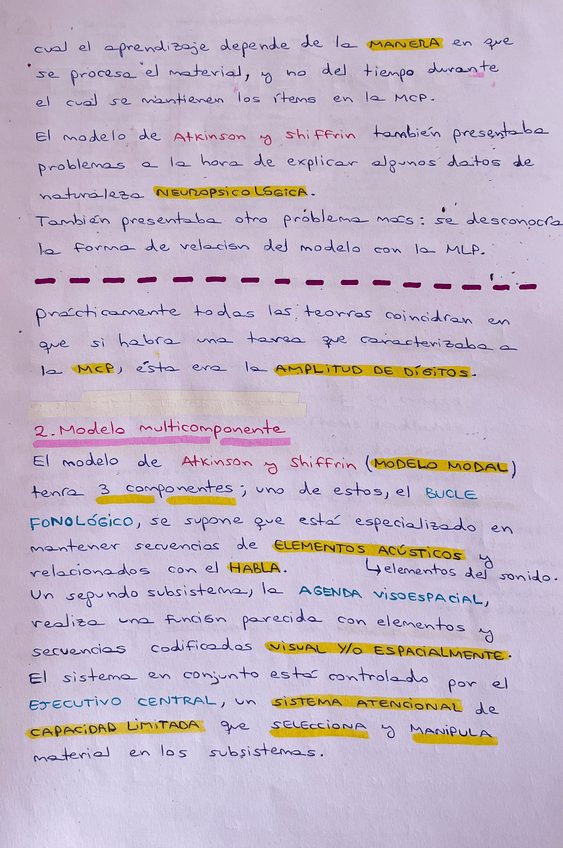 cual el aprendizaje depende de la MANERA en que
se procesa el material, y no del tiempo durante
el cual se mantienen los ítems en la MCP.
El modelo de Atkinson y Shiffrin también presentaba
problemas a la hora de explicar algunos datos de
naturaleza NEUROPSICOLÓGICA.
También presentaba otro problema más: se desconocía
la forma de relación del modelo con la MLP.
prácticamente todas las teorías coincidían en
que si había una tarea que caracterizaba a
la MCP, ésta era la AMPLITUD DE DÍGITOS.
2. Modelo multicomponente
El modelo de Atkinson y Shiffrin (MODELO MODAL)
tenía 3 componentes; uno de estos, el BUCLE
FONOLÓGICO, se supone que está especializado en
mantener secuencias de ELEMENTOS ACÚSTICOS y
relacionados con el HABLA. ↳elementos del sonido.
Un segundo subsistema, la AGENDA VISOESPACIAL,
realiza una función parecida con elementos y
secuencias codificadas VISUAL Y/O ESPACIALMENTE.
El sistema en conjunto está controlado por el
EJECUTIVO CENTRAL, un SISTEMA ATENCIONAL de
CAPACIDAD LIMITADA que SELECCIONA y MANIPULA
material en los subsistemas.